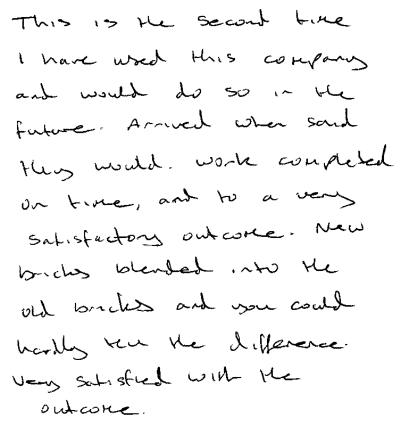 This is the second time
I have used this company
and would do so in the
future. Arrived when said
they would. Work completed
on time, and to a very
satisfactory outcome. New
bricks blended into the
old bricks and you could
hardly tell the difference.
Very satisfied with the
outcome.